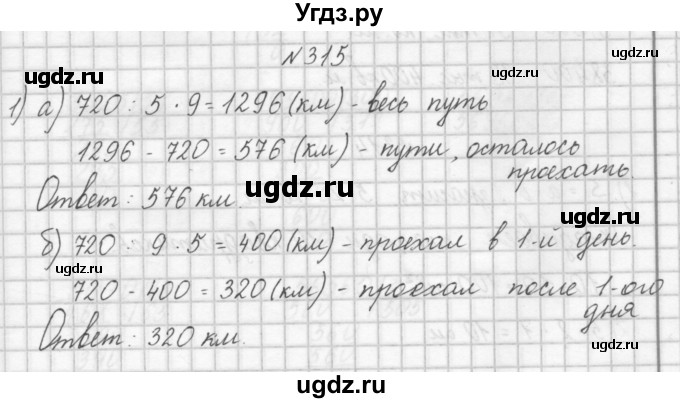 Угдз.ру
№315
ugdz.ru ugdz.ru
1) а) 720 : 5 · 9 = 1296 (км) - весь путь
1296 - 720 = 576 (км) - пути, осталось
проехать.
ugdz.ru
Ответ: 576 км.
ugdz.ru
б) 720 : 9 · 5 = 400 (км) - проехал в 1-й день.
ugdz.ru
720 - 400 = 320 (км) - проехал после 1-ого
дня
ugdz.ru
Ответ: 320 км.
ugdz.ru
ugdz.ru